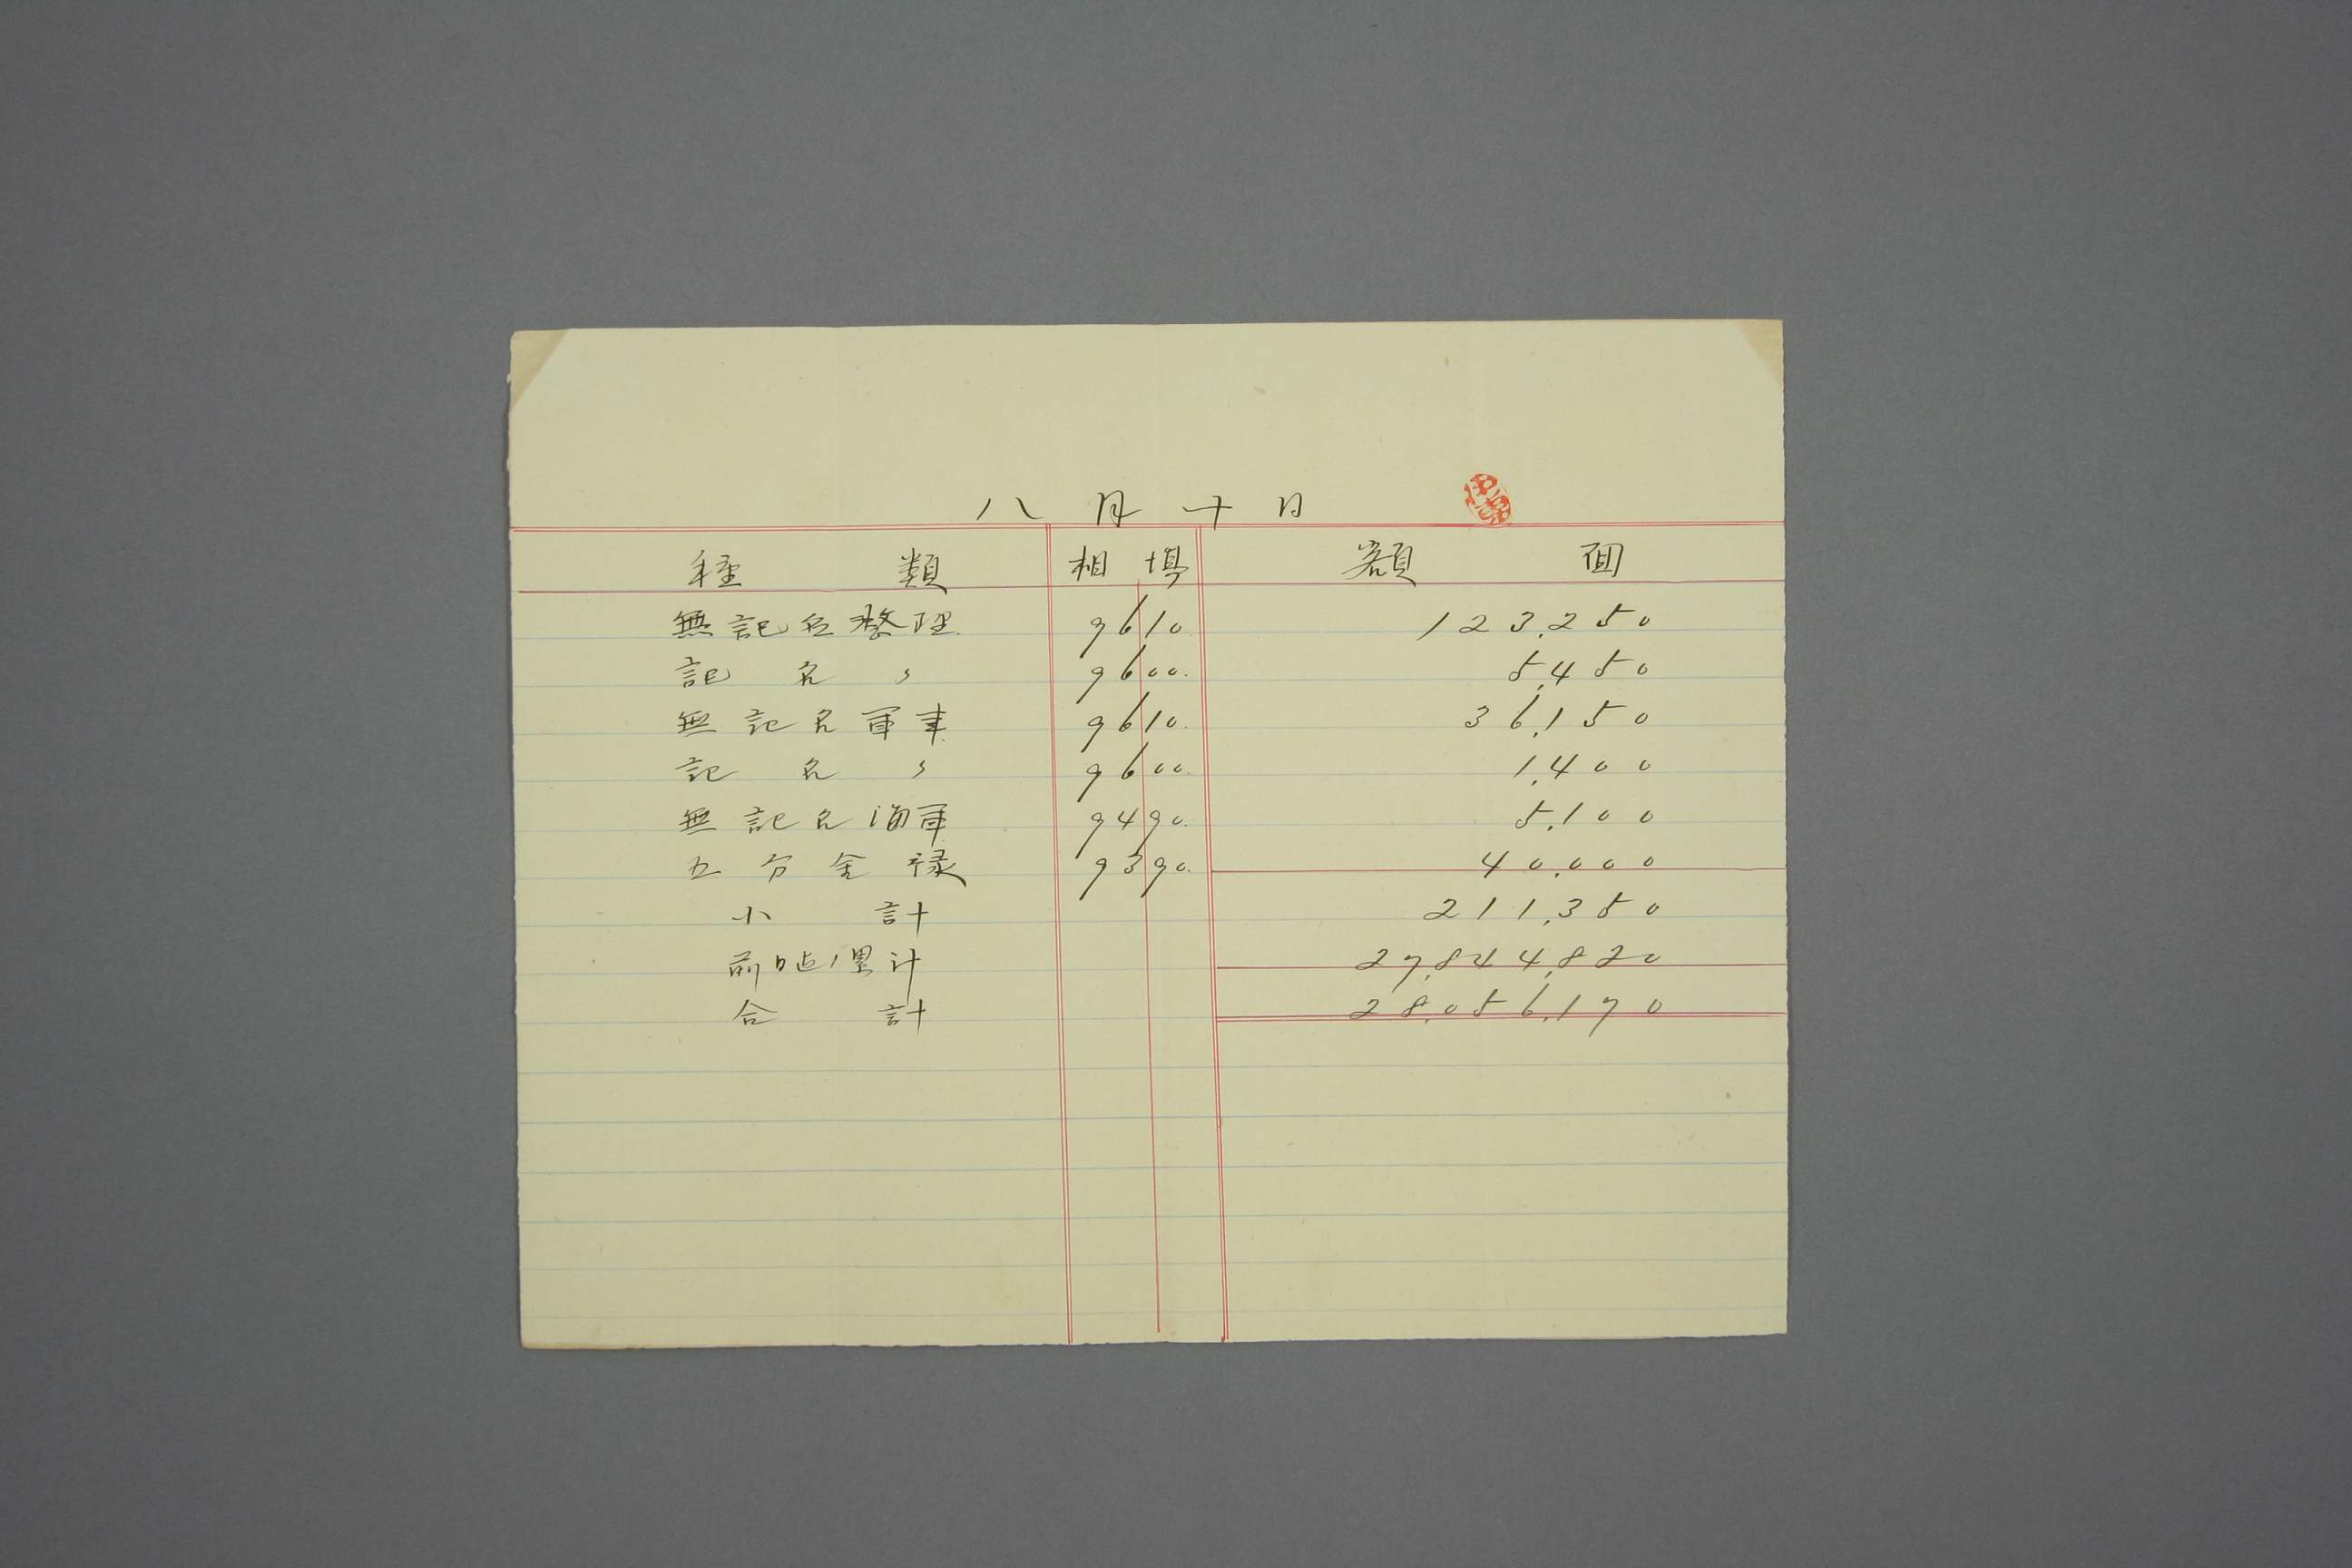 八月十日
種類 相場 額面
無記名整理 96 10. 123,250
記名〃 96 00. 5,450
無記名軍事 96 10. 36,150
記名〃 96 00. 1,400
無記名海軍 94 90. 5,100
五分金禄 93 90. 40,000
小計 211,350
前日迄ノ累計 27,844,820
合計 28,056,170